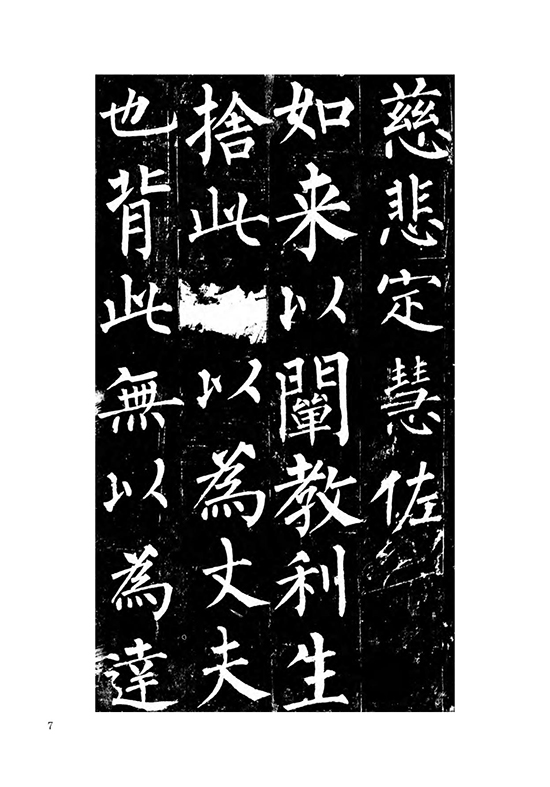 慈悲定慧佐
如来以闡教利生
捨此以為丈夫
也背此無以為達
7